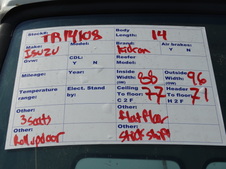 Stock#: TR14108 Body Length: 14
Make: ISUZU Model: Brand: Kidron Air broken:
Gvw: CDL: Y N Reefer Model: Y N
Mileage: Year: Inside Width: 88 Outside Width: 96
Tire Range: Elect. Stand by: Ceiling To floor: C 2 F 77 Header To floor: H 2 F 71
Other: 3 seats Other: Flat Floor
Other: Rollup door Other: stick shift